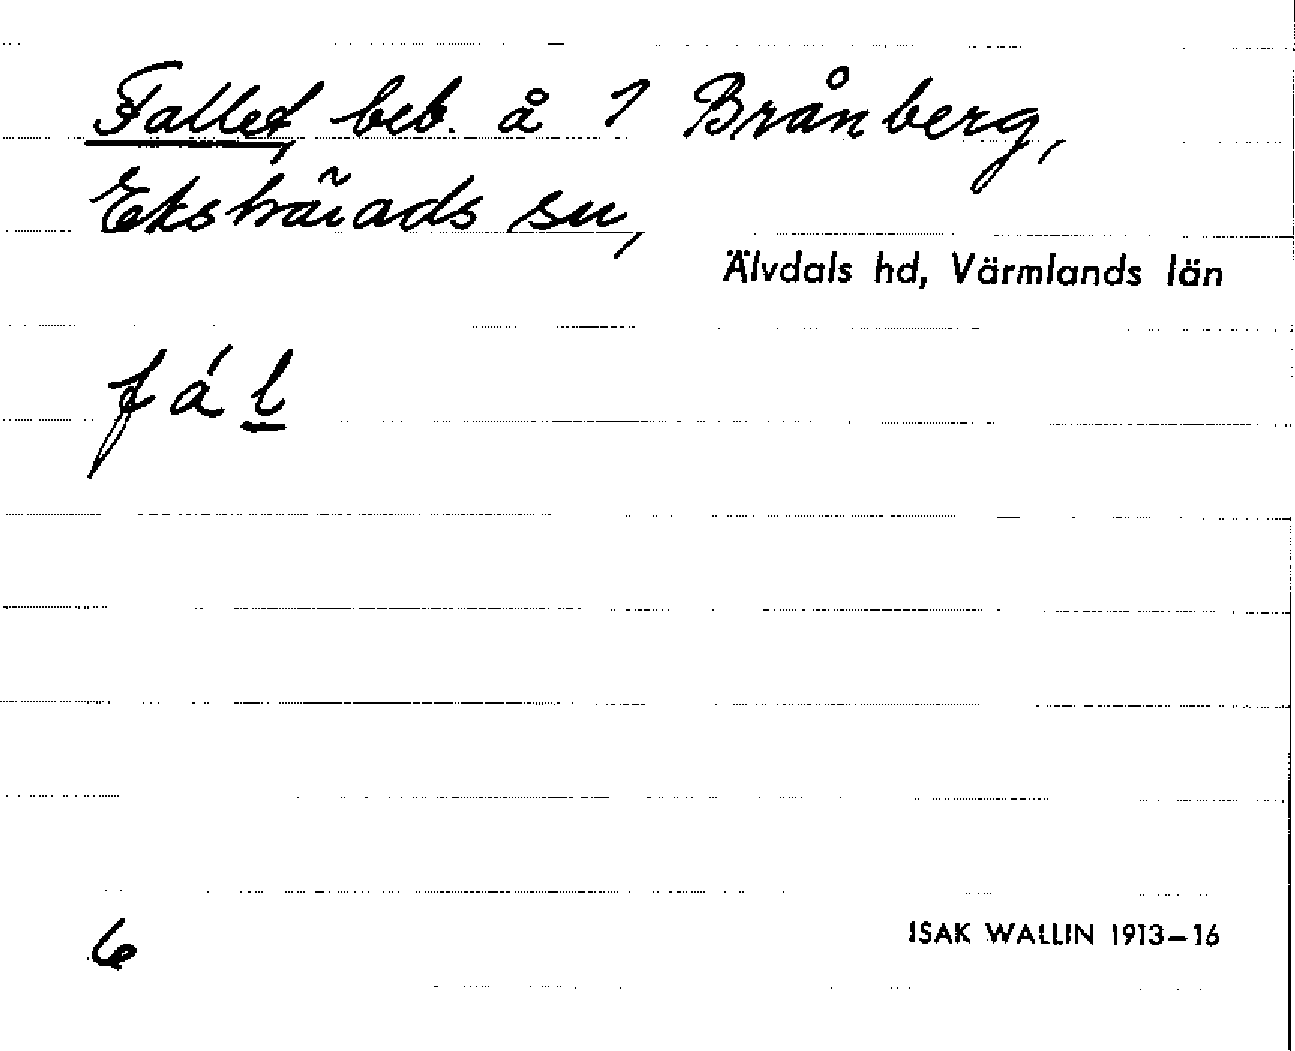 Fallet, beb. å 1 Brånberg,
Ekshärads sn,
Älvdals hd, Värmlands län
fál
6
ISAK WALLIN 1913–16